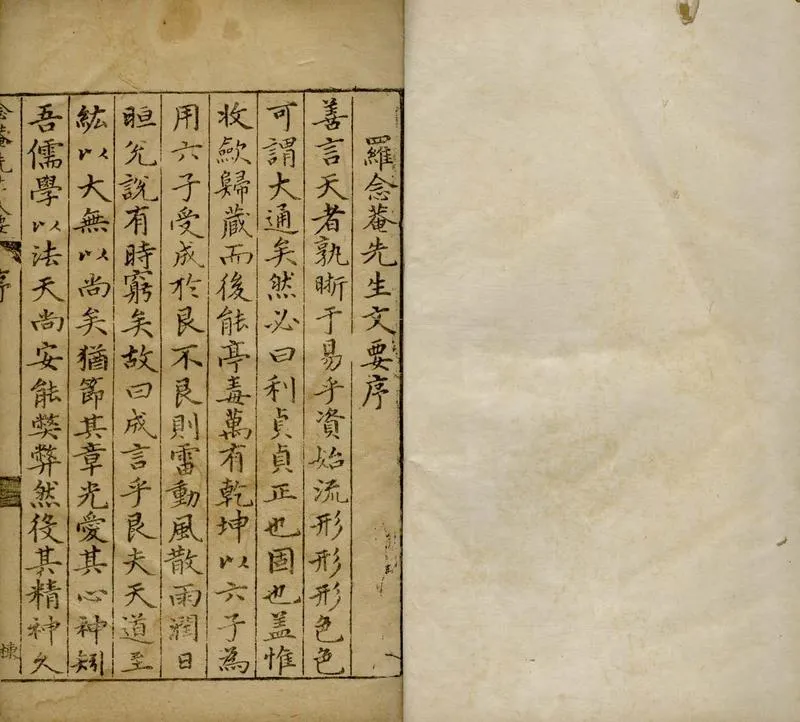 羅念菴先生文要序
善言天者孰晰于易乎資始流形形形色色
可謂大通矣然必曰利貞貞正也固也盖惟
收歛歸藏而後能亭毒萬有乾坤以六子為
用六子受成於艮不艮則雷動風散雨潤日
晅兊說有時窮矣故曰成言乎艮夫天道至
紘以大無以尚矣猶節其章光愛其心神矧
吾儒學以法天尚安能獘弊然役其精神久
序